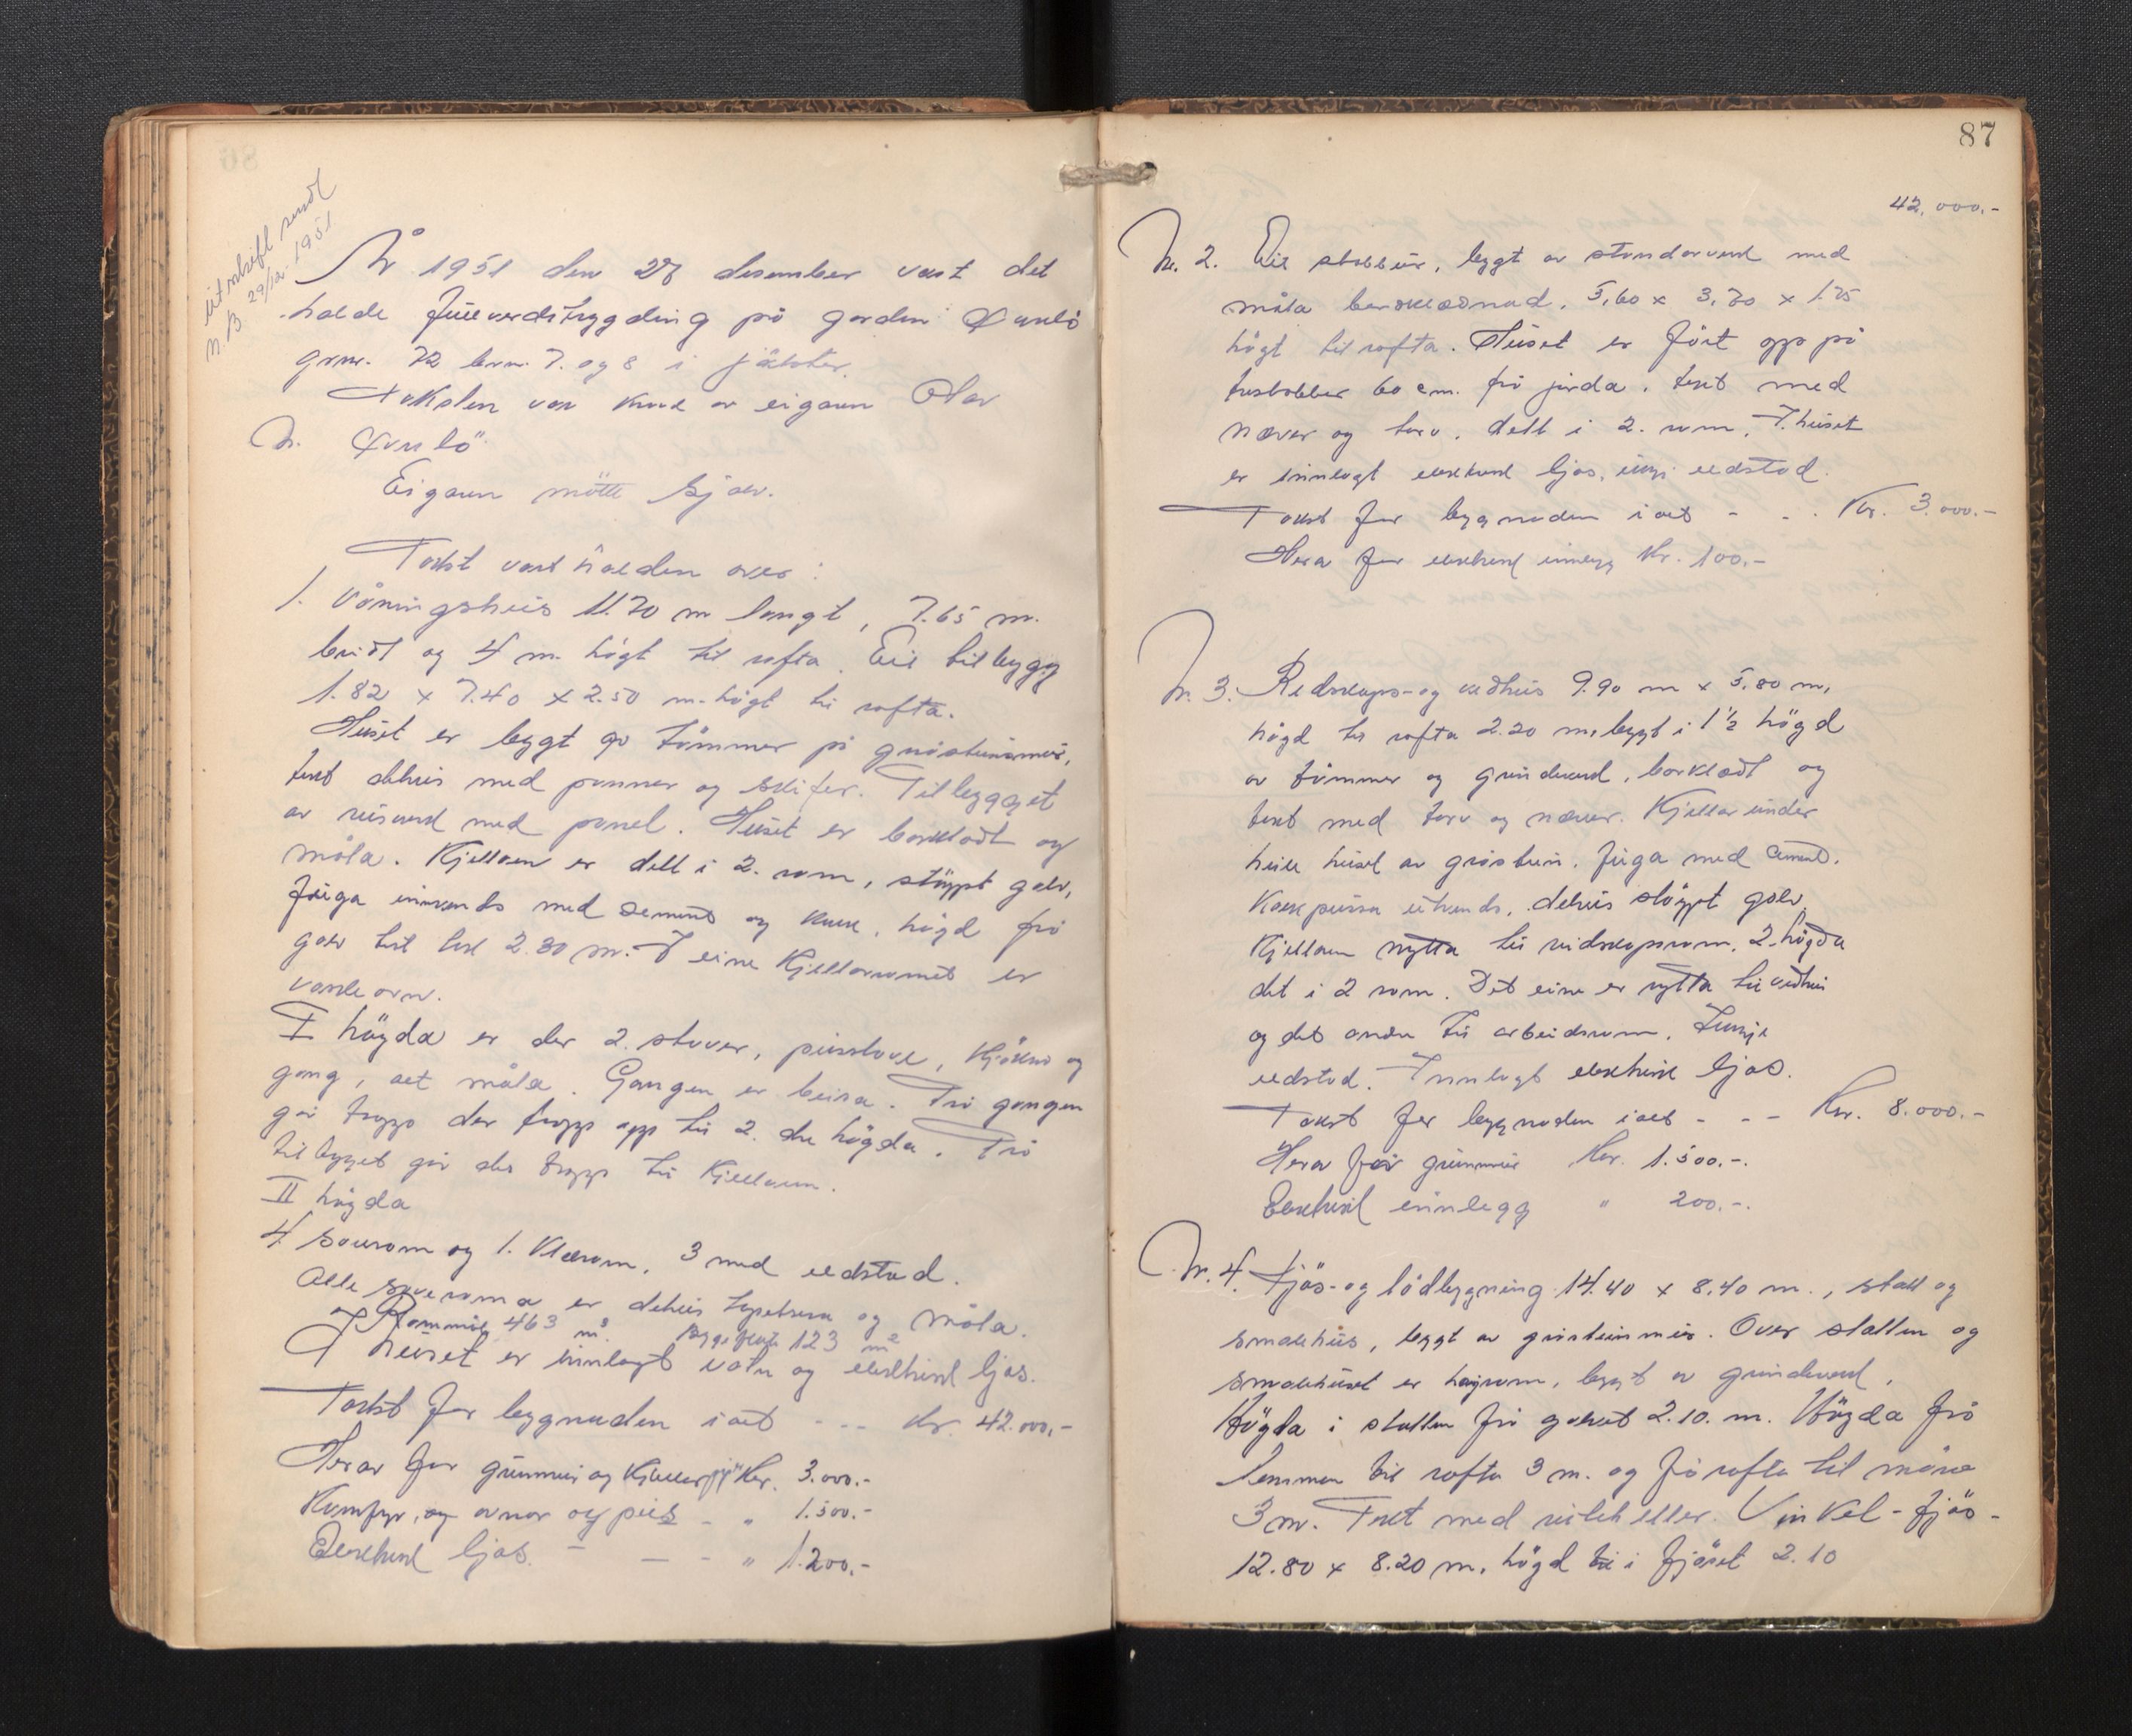 86
Utskrift sendt
N.B 29/12. 1951
År 1951 den 28 desember vart det
halde fullverdstrygding på garden Kvalø
grnr. 72 brnr. 7. og 8 i Jølster.
Taksten var kravd av eigaren Olav
N. Kvalø.
Eigaren møtte sjølv.
Takst vart halden over:
1. Våningshus 11.70 m langt, 7.65 m.
breidt og 4 m. högt til rafta. Eit tilbygg
1.82 x 7.40 x 2.50 m. högt til rafta.
Huset er bygt av tömmer på gråsteinsmur,
tekt delvis med panner og skifer. Tilbygget
av reisverk med panel. Huset er bordkledt og
måla. Kjellaren er delt i 2. rom, stöypt golv,
fuga innvends med sement og kalk, högd frå
golv til tak 2.30 m. I eine kjellarromet er
vaskeovn.
I högda er der 2. stover, peisstove, kjöken og
gang, alt måla. Gangen er beisa. Frå gangen
går trapp der trapp opp til 2. dre högda. Frå
tilbygget går der trapp til kjellaren.
II högda
4 soverom og 1. klerom. 3 med eldstad.
Alle soveroma er delvis tapetsera og måla.
Rommål 463 m³. Byggeflate 123 m²
I huset er innlagt vatn og elektrisk ljos.
Takst for bygnaden i alt - - - kr. 42.000,-
Herav for grunnmur og kjellar kr. 3.000.-
Komfyr, og ovnar og peis - " 1.500.-
Elektrisk ljos. - - - " 1.200,-
87
42.000.-
Nr. 2. Eit stabbur, bygt av standarverk med
måla bordklednad. 5,60 x 3,70 x 1.75
högt til rafta. Huset er fört opp på
trestabber 60 cm. frå jorda, tekt med
næver og torv, delt i 2. rom. I huset
er innlagt elektrisk ljos, ingi eldstad.
Takst for bygnaden i alt - - - Kr. 3.000.-
Herav for elektrisk innlegg kr. 100.-
Nr. 3. Reidskaps- og vedhus 9.90 m x 5.80 m,
högd til rafta 2.20 m, bygt i 1½ högd
av tömmer og grindverk, borkledt og
tekt med torv og næver. Kjellar under
heile huset av gråstein, fuga med cement.
Kalkpussa utvends, delvis stöypt golv.
Kjellaren nytta til reidskapsrom. 2. högda
delt i 2 rom. Det eine er nytta til vedhus
og det andre til arbeidsrom. Inngje
eldstad. Innlagt elektrisk ljos.
Takst for bygnaden i alt - - - Kr. 8.000.-
Herav for grunnmur Kr. 1.500.-.
Elektrisk innlegg " 200.-.
Nr. 4. Fjös- og lödbygning 14.40 x 8.40 m., stall og
smalehus, bygt av gråsteinmur. Over stallen og
smalehuset er høyrom, bygt av grindverk.
Högda i stallen frå golvet 2.10. m. Högda frå
lemmen til rafta 3 m. og frå rafta til möne
3 m. Tekt med villeheller. Vinkel-fjös-
12.80 x 8.20 m. högd til i fjöset 2.10